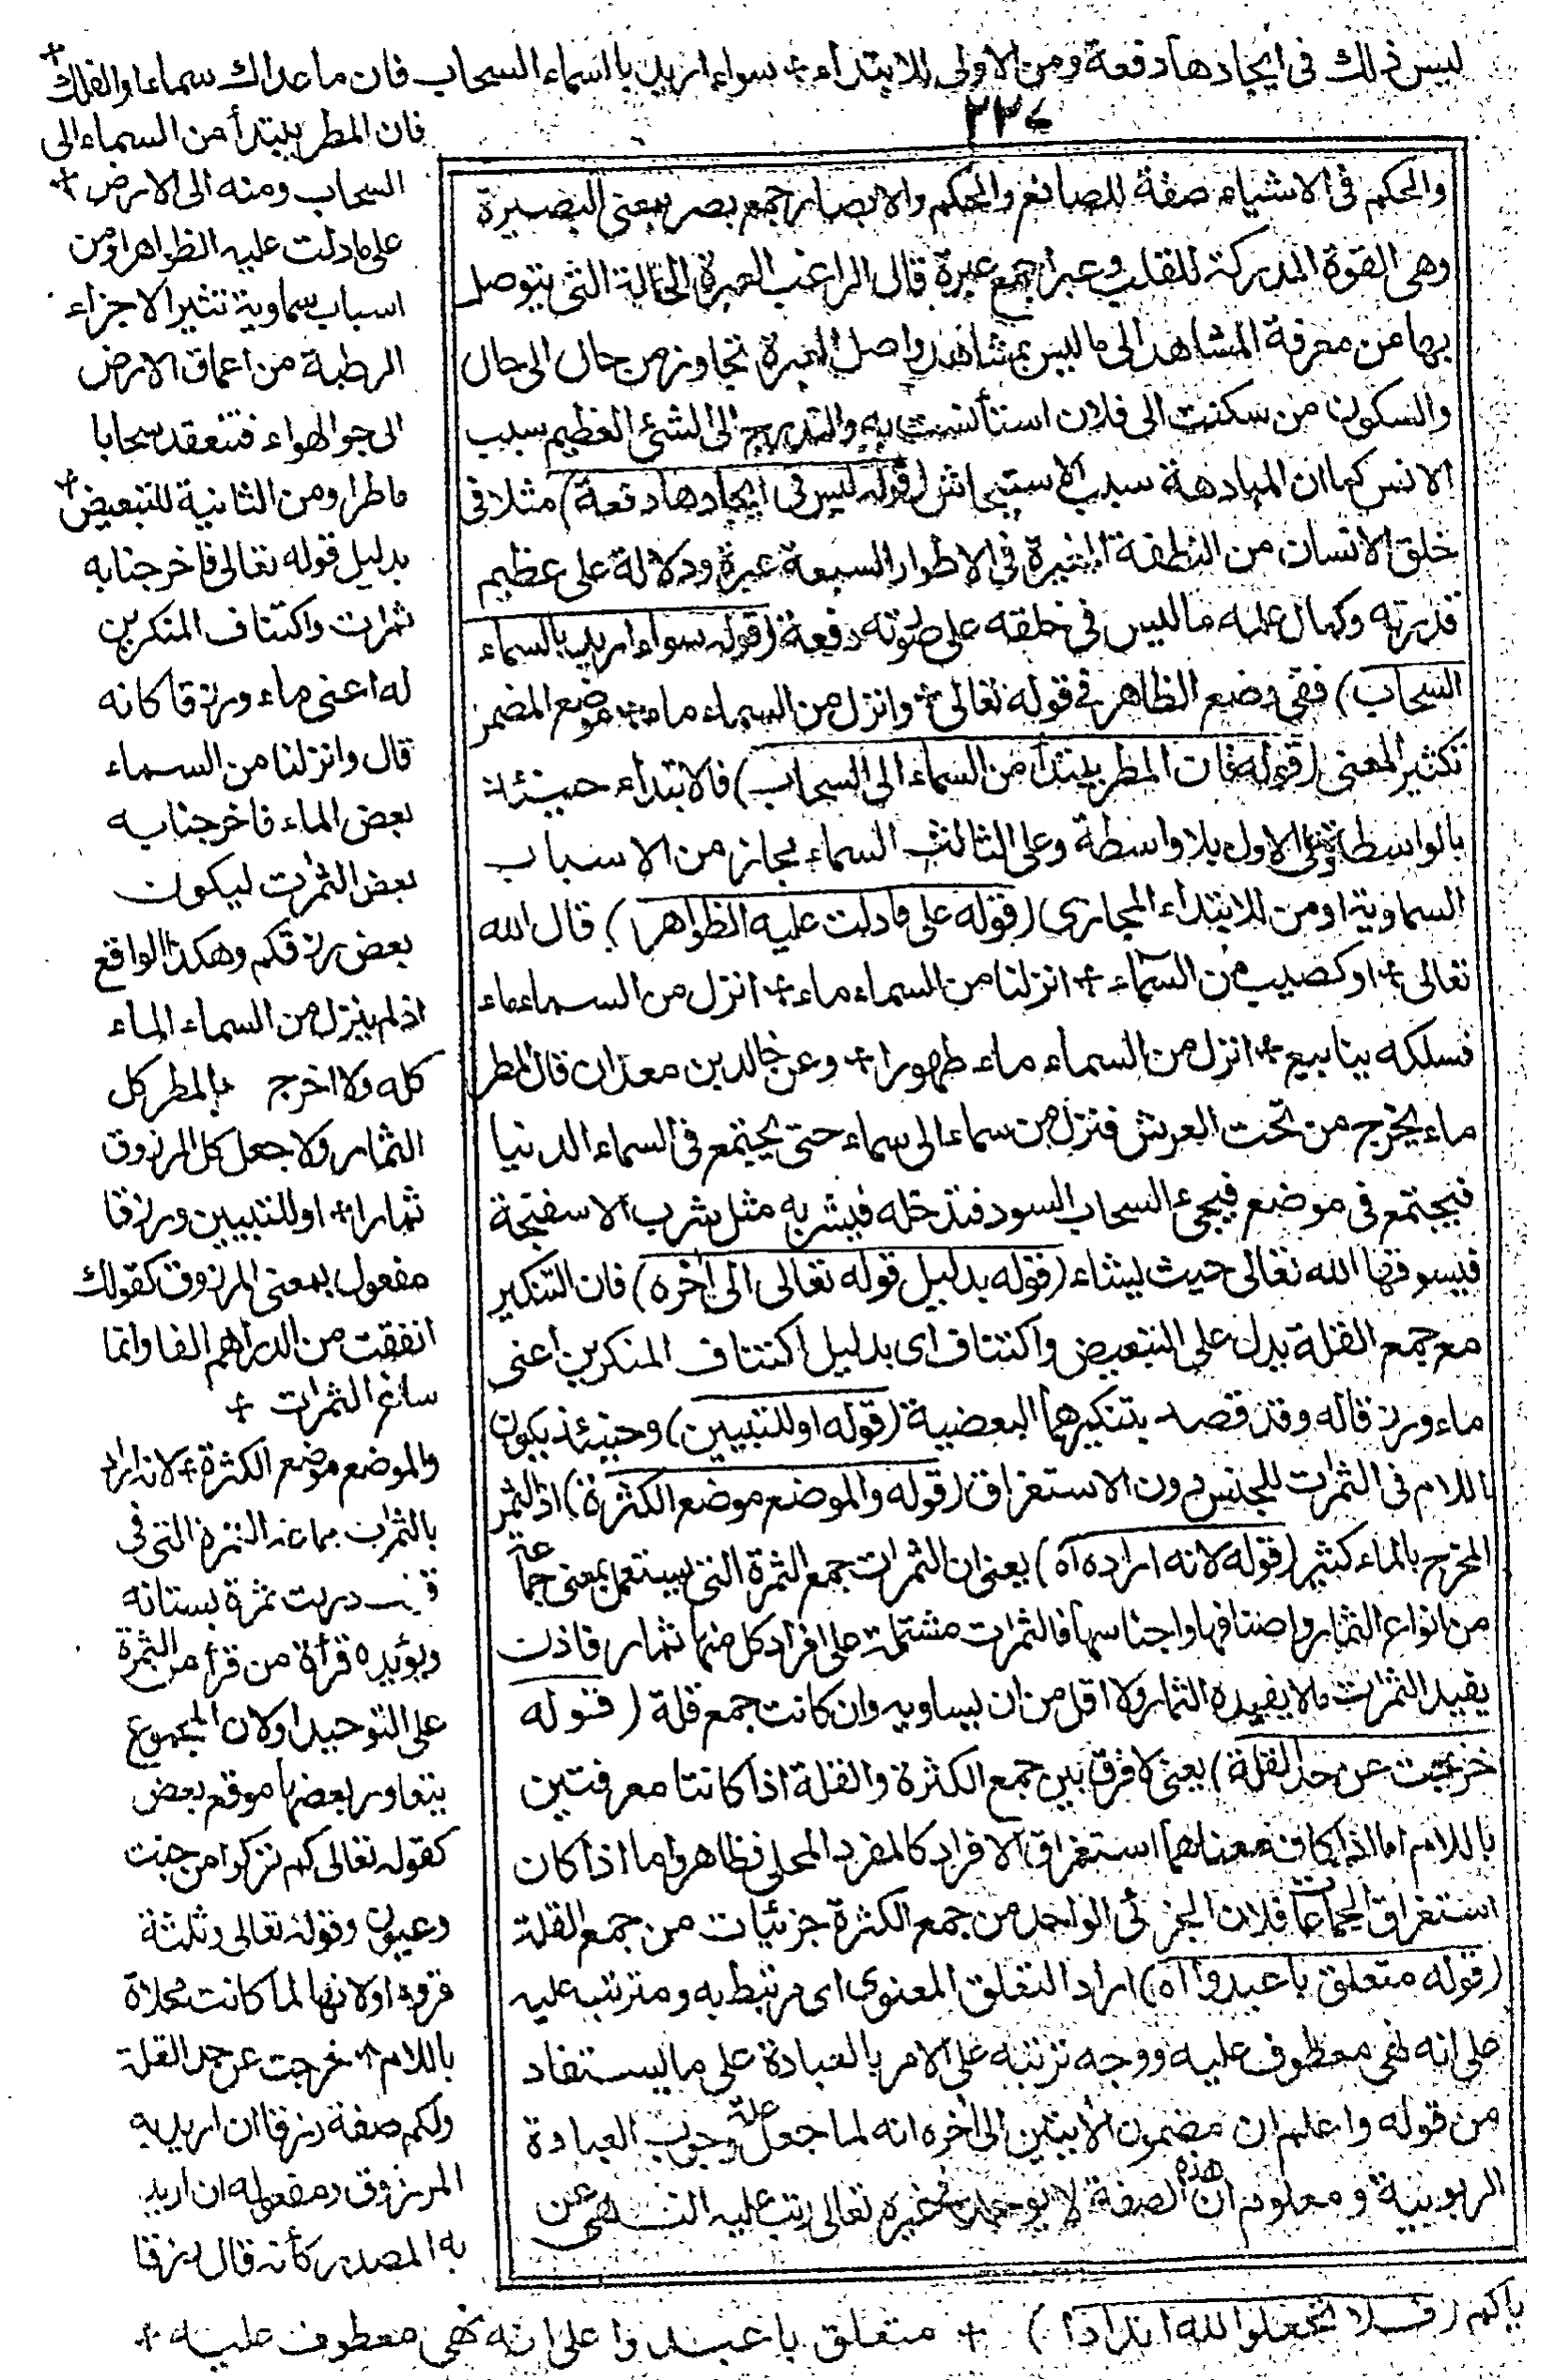 ليس ذلك فى ايجادها دفعة ومن الاولى للابتداء + سواء اريد بالسماء السحاب فان ما علاك سماء او الفلك +
٢٣٤
فان المطر يبتدأ من السماء الى
السحاب ومنه الى الارض +
على ما دلت عليه الظواهر او من
اسباب سماوية تثير الاجزاء
الرطبة من اعماق الارض
الى جو الهواء فتنعقد سحابا
ماطرا ومن الثانية للتبعيض +
بدليل قوله تعالى فاخرجنا به
ثمرات واكتناف المنكرين
له اعنى ماء ورزقا كانه
قال وانزلنا من السماء
بعض الماء فاخرجنا به
بعض الثمرت ليكون
بعض رزقكم وهكذا الواقع
اذ لم ينزل من السماء الماء
كله ولا اخرج بالمطر كل
الثمار ولا جعل كل المرزوق
ثمارا + او للتبيين ورزقا
مفعول بمعنى المرزوق كقولك
انفقت من الدراهم الفا وانما
ساغ الثمرت +
والموضع موضع الكثرة + لانه اراد
بالثمرات جماعة الثمرة التى فى
دركت ثمرة بستانه
ويؤيده قرأة من قرأ من الثمرة
على التوحيد او لان الجموع
يتعاور بعضها موقع بعض
كقوله تعالى كم تركوا من جنت
وعيون وقوله تعالى وثلثة
قروء او لانها لما كانت محلاة
باللام + خرجت عن حد القلة
ولكم صفة رزقا ان اريد به
المرزوق ومفعوله ان اريد
به المصدر كأنه قال رزقا
والحكم فى الاشياء صفة للصانع والحكم والابصار جمع بصر بمعنى البصيرة
وهى القوة المدركة للقلب وعبرا جمع عبرة قال الراغب العبرة الحالة التى يتوصل
بها من معرفة المشاهد الى ما ليس بمشاهد واصل العبرة تجاوز من حال الى حال
والسكون من سكنت الى فلان استأنست به والتدريج الى الشئ العظيم سبب
الانس كما ان المبادهة سبب الاستيحاش (قوله ليس فى ايجادها دفعة) مثلا فى
خلق الانسان من النطفة فى الاطوار السبعة عبرة ودلالة على عظيم
قدرته وكمال علمه ما ليس فى خلقه على صورته دفعة (قوله سواء اريد بالسماء
السحاب) ففى وضع الظاهر فى قوله تعالى + وانزل من السماء ماء + موضع المضمر
تكثير المعنى (قوله فان المطر يبتدأ من السماء الى السحاب) فالابتداء حينئذ
بالواسطة وعلى الاول بلا واسطة وعلى الثالث السماء مجاز من الاسباب
السماوية او من للابتداء المجازى (قوله على ما دلت عليه الظواهر) قال الله
تعالى + او كصيب من السماء + انزلنا من السماء ماء + انزل من السماء ماء
فسلكه ينابيع + انزل من السماء ماء طهورا + وعن خالد بن معدان قال المطر
ماء يخرج من تحت العرش فنزل من سماء الى سماء حتى يجتمع فى السماء الدنيا
فيجتمع فى موضع فيجئ السحاب السود فتدخله فيشربه مثل شرب الاسفنجة
فيسوقها الله تعالى حيث يشاء (قوله بدليل قوله تعالى الى أخره) فان التنكير
مع جمع القلة يدل على التبعيض واكتناف اى بدليل اكتناف المنكرين اعنى
ماء ورزقا له وقد قصد بتنكيرهما البعضية (قوله او للتبيين) وحينئذ يكون
اللام فى الثمرت للجنس دون الاستغراق (قوله والموضع موضع الكثرة) اذ الثمر
المخرج بالماء كثير (قوله لانه اراده اه) يعنى ان الثمرات جمع الثمرة التى يستعمل بمعنى جماعة
من انواع الثمار واصنافها واجناسها فالثمرات مشتملة على افراد كل منها ثمار فاذن
يفيد الثمرات ما لا يفيده الثمار ولا اقل من ان يساويه وان كانت جمع قلة (قوله
خرجت عن حد القلة) يعنى لا فرق بين جمع الكثرة والقلة اذا كانتا معرفتين
باللام اما اذا كان معناهما استغراق الافراد كالمفرد المحلى فظاهر واما اذا كان
استغراق الجماعات فلان الجزئى الواحد من جمع الكثرة جزئيات من جمع القلة
(قوله متعلق باعبدوا اه) اراد التعلق المعنوى اى مرتبط به ومترتب عليه
على انه نهى معطوف عليه ووجه ترتبه على الامر بالعبادة على ما يستفاد
من قوله واعلم ان مضمون الأيتين الى أخره انه لما جعل علة وجوب العبادة
الربوبية ومعلوم ان هذه الصفة لا يوجد فى غيره تعالى رتب عليه النهى عن
ياكم (فلا تجعلوا لله اندادا) + متعلق باعبدوا على انه نهى معطوف عليه +